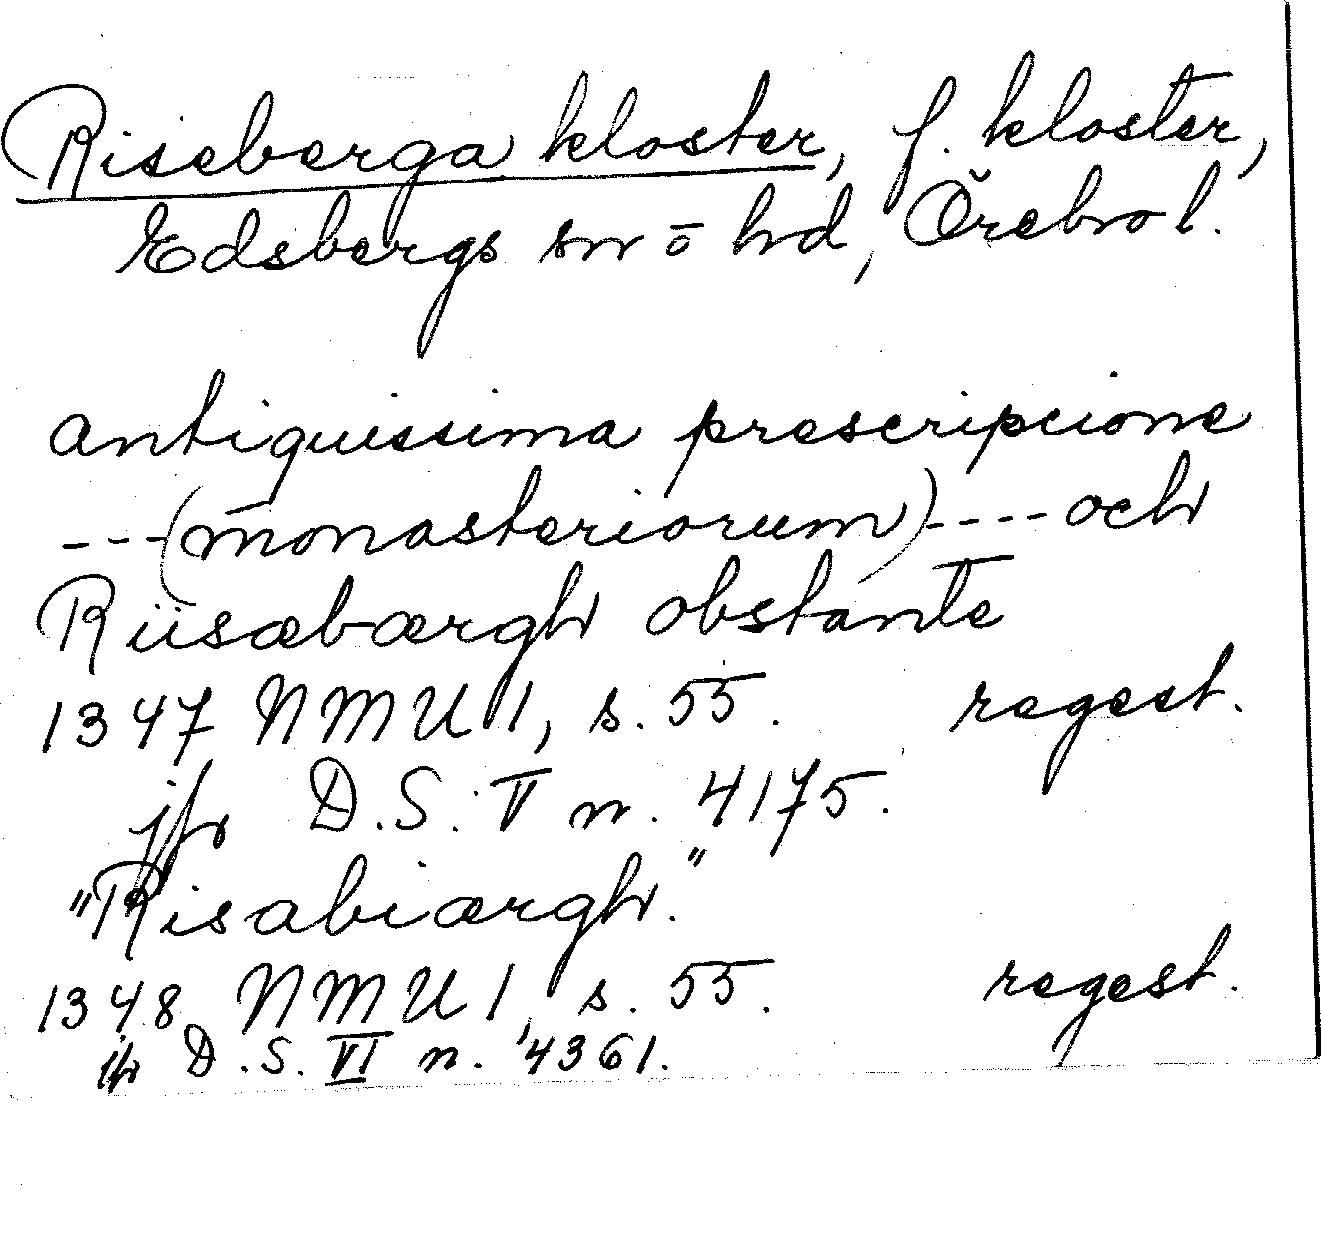 Riseberga kloster, f. kloster,
Edsbergs sn o hd, Örebro l.
antiquissima prescripcione
---(monasteriorum)---- och
Riisæbærgh obstante
1347 NMU 1, s. 55. regest.
jfr D.S. V n. 4175.
"Risabiærgh."
1348 NMU 1, s. 55. regest.
jfr D.S. VI n. 4361.